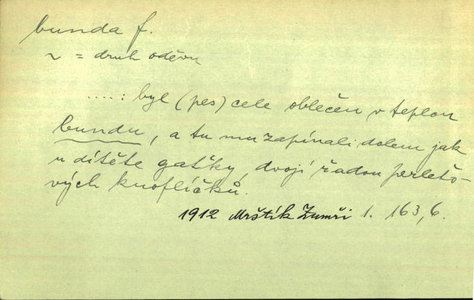 bunda f.
~ = druh oděvu
....: byl (pes) cele oblečen v teplou
bundu, a tu mu zapínali dolem jak
u dítěte gatky, dvojí řadou perleťo-
vých knoflíčků.
1912 Mrštík Zumři 1. 163,6.